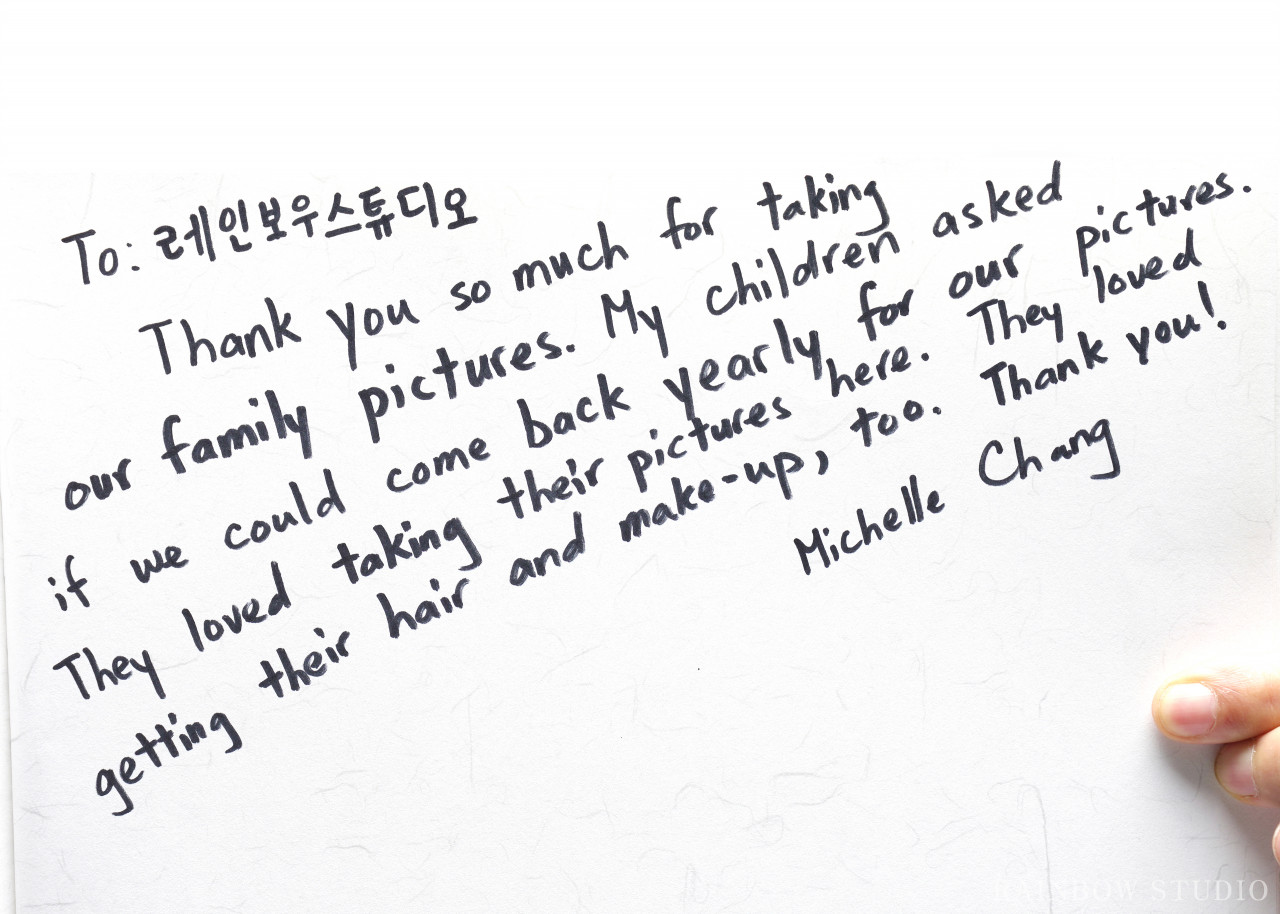 To: 레인보우스튜디오
Thank you so much for taking
our family pictures. My children asked
if we could come back yearly for our pictures.
They loved taking their pictures here. They loved
getting their hair and make-up, too. Thank you!
Michelle Chang
RAINBOW STUDIO